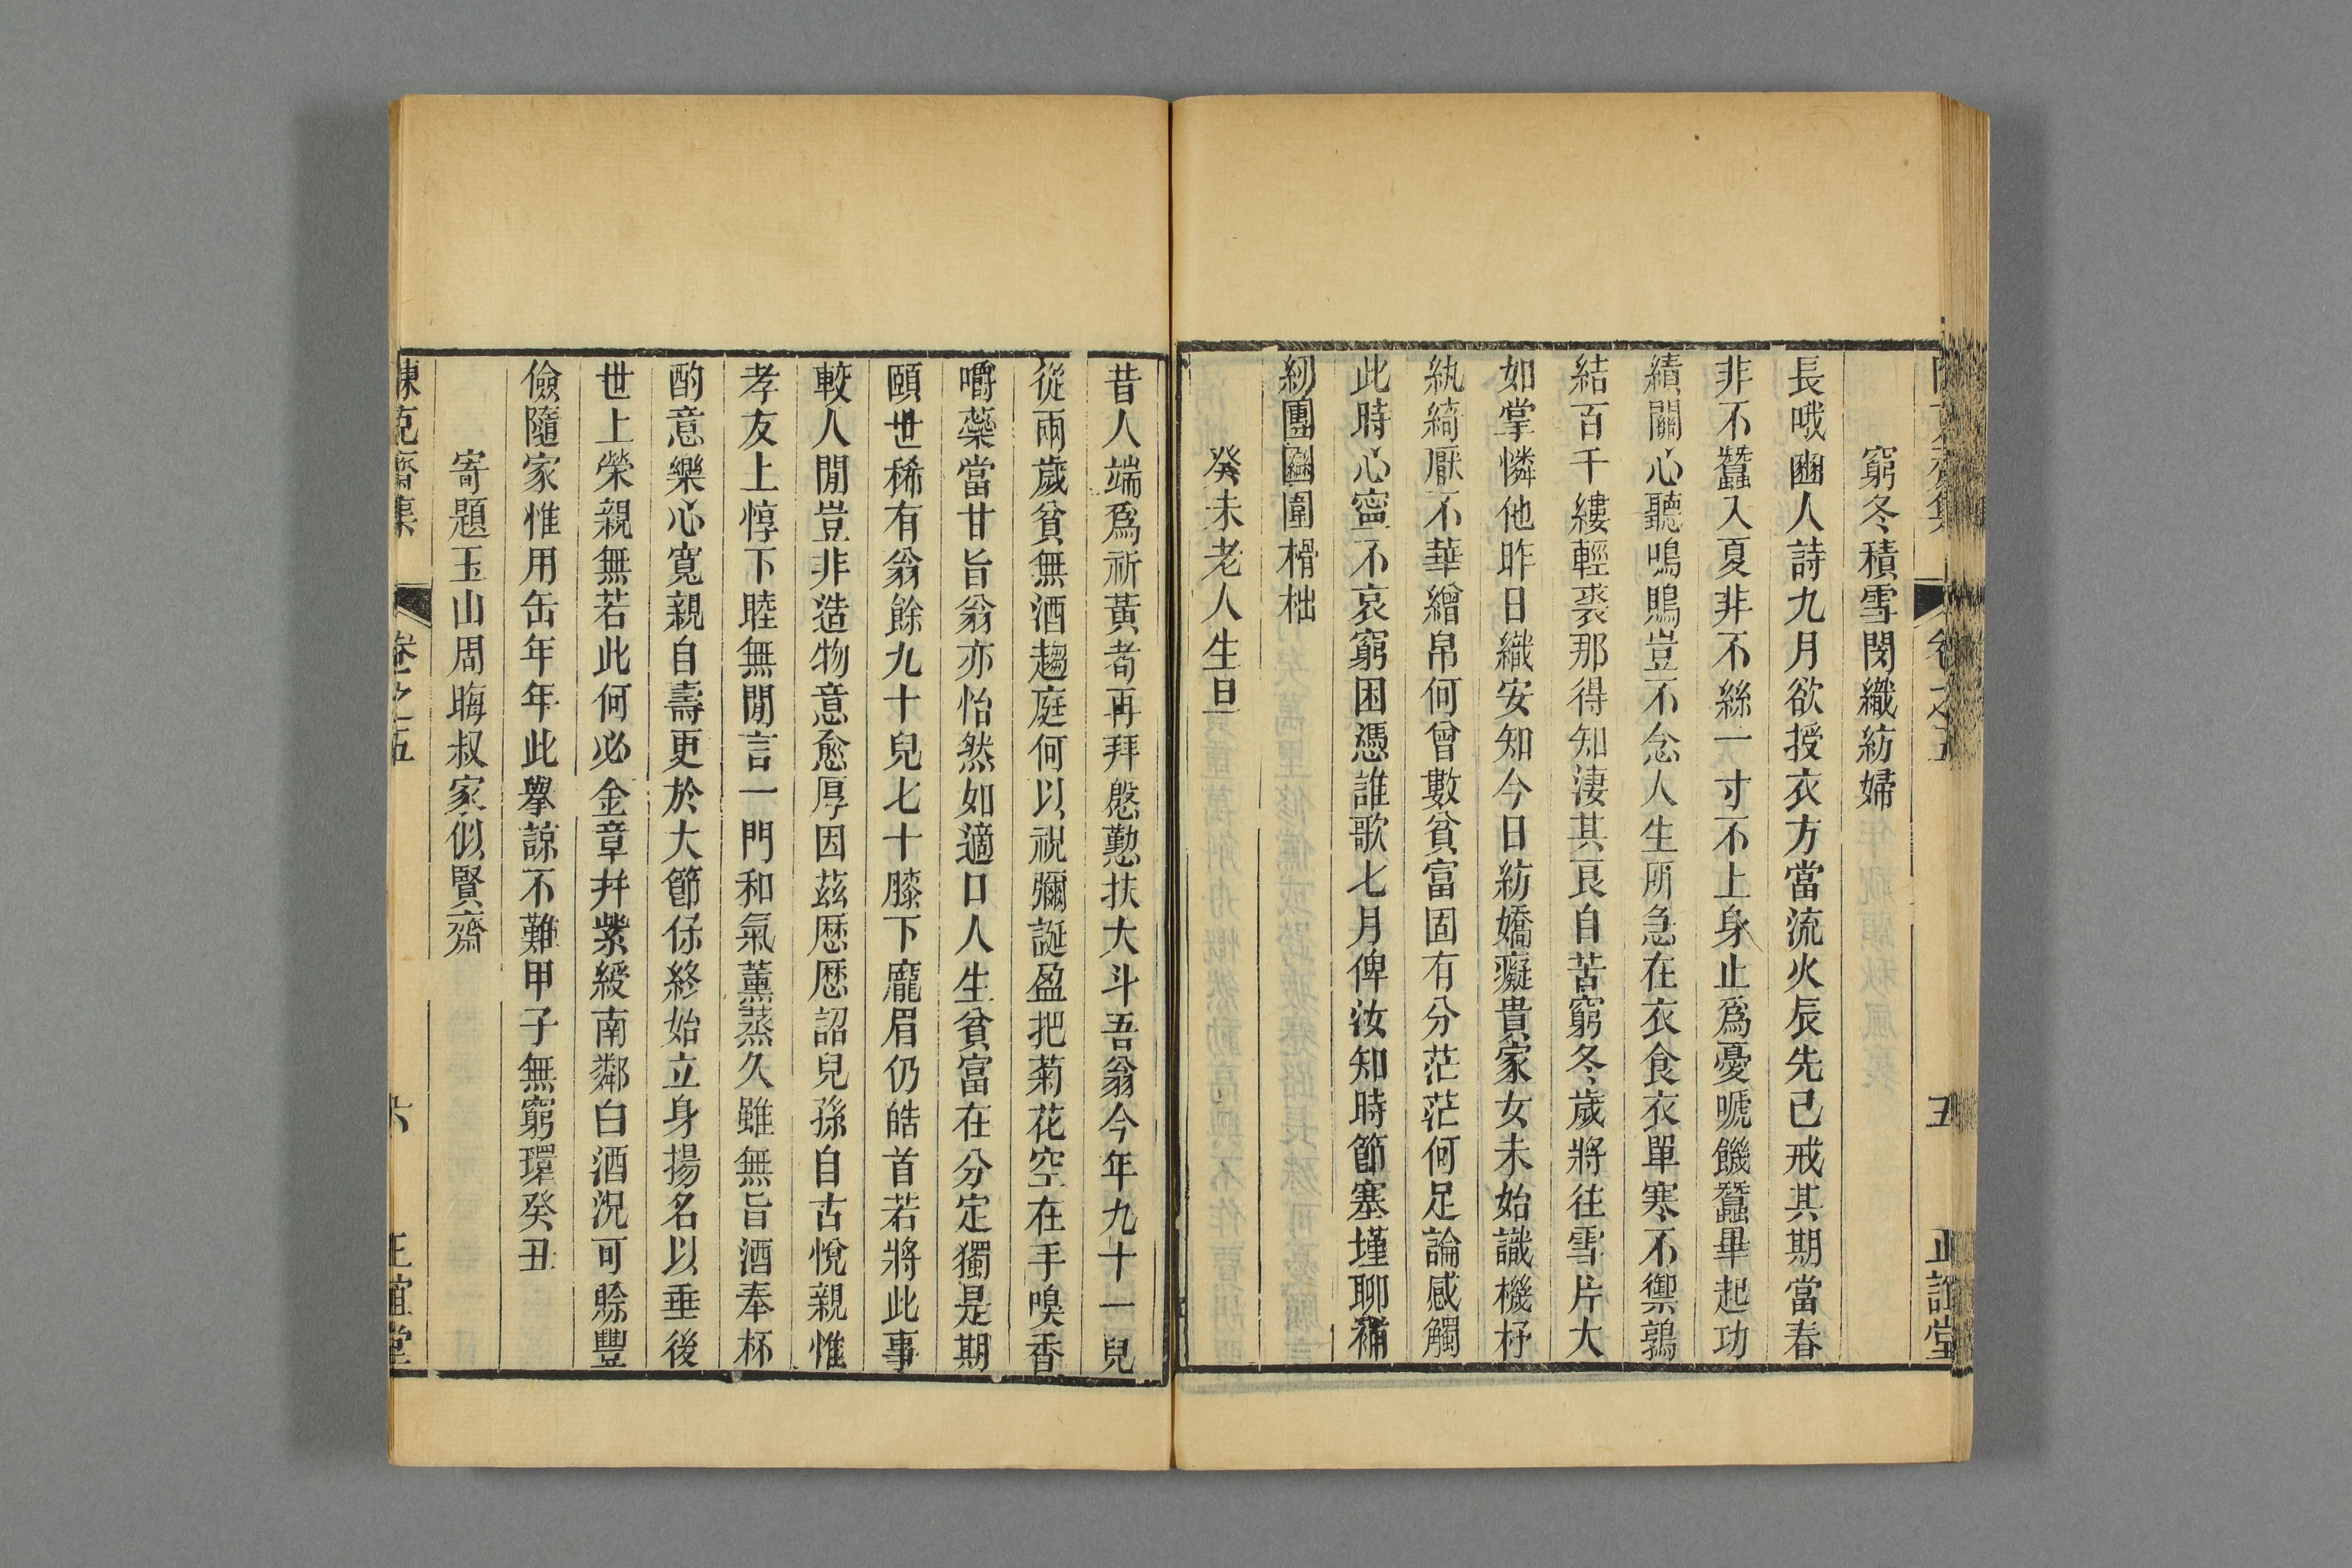 窮冬積雪閔織紡婦
長哦豳人詩九月欲授衣方當流火辰先已戒其期當春
非不蠶入夏非不絲一寸不上身止爲憂嗁饑蠶畢起功
績關心聽鳴鵙豈不念人生所急在衣食衣單寒不禦鶉
結百千縷輕裘那得知淒其艮自苦窮冬歲將往雪片大
如掌憐他昨日織安知今日紡嬌癡貴家女未始識機杼
紈綺厭不華繒帛何曾數貧富固有分茫茫何足論感觸
此時心寧不哀窮困憑誰歌七月俾汝知時節塞墐聊補
紉團圝圍榾柮
癸未老人生旦
昔人端爲祈黃耇再拜慇懃扶大斗吾翁今年九十一兒
從兩歲貧無酒趨庭何以祝彌誕盈把菊花空在手嗅香
嚼蘂當甘旨翁亦怡然如適口人生貧富在分定獨是期
頤世稀有翁餘九十兒七十膝下龐眉仍皓首若將此事
較人閒豈非造物意愈厚因茲歴歴詔兒孫自古悅親惟
孝友上惇下睦無閒言一門和氣薰蒸久雖無旨酒奉杯
酌意樂心寬親自壽更於大節保終始立身揚名以垂後
世上榮親無若此何必金章幷紫綬南鄰白酒況可賒豐
儉隨家惟用缶年年此舉諒不難甲子無窮環癸丑
寄題玉山周晦叔家似賢齋
陳克齋集 卷之五 六 正誼堂